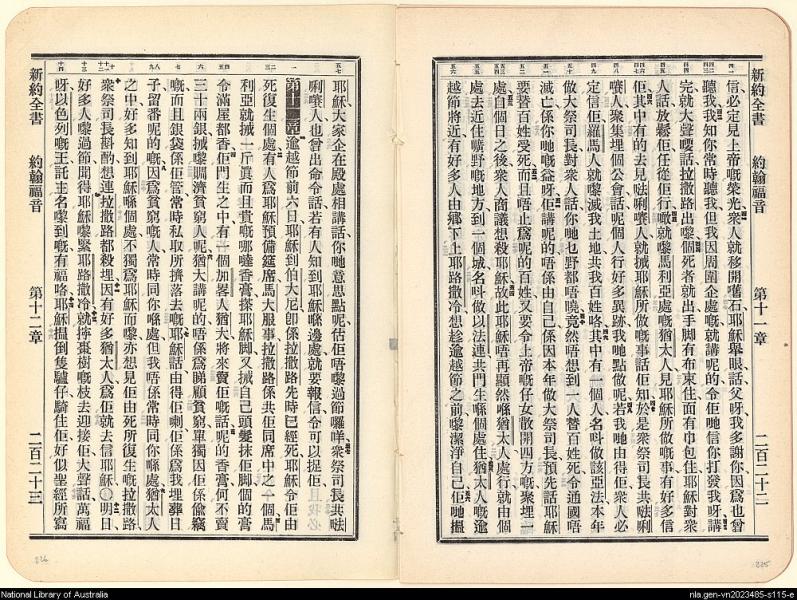 新約全書 約翰福音 第十一章 二百二十二
信必定見上帝嘅榮光衆人就移開嚿石耶穌舉眼話父呀我多謝你因爲也曾
聽我我知你常時聽我但我因周圍企處嘅就講呢的令佢哋信你打發我呀講
完就大聲嘐話拉撒路出嚟個死者就出手脚有布束住面有巾包住耶穌對衆
人話放鬆佢任從佢行噉就嚟馬利亞處嘅猶太人見耶穌所做嘅事有好多信
佢其中有的去見𠵽唎嚽人就捄耶穌所做嘅事話佢知於是衆祭司長共𠵽唎
嚽人衆集埋個公會話呢個人行好多異跡我哋點做呢若我哋由得佢衆人必
定信佢羅馬人就嚟滅我土地共我百姓咯其中有一個人名呌做該亞法本年
做大祭司長對衆人話你哋乜野都唔曉竟然唔想到一人替百姓死令通國唔
滅亡係你哋嘅益呀佢講呢的唔係由自己係因本年做大祭司長預先話耶穌
要替百姓受死而且唔止爲呢的百姓又要令上帝嘅仔女散開四方嘅聚埋一
處自個日之後衆人商議想殺耶穌故此耶穌唔再顯然喺猶太人處行就由個
處去近住曠野嘅地方到一個城名呌做以法連共門生喺個處住猶太人嘅逾
越節將近有好多人由鄉下上耶路撒冷想趁逾越節之前嚟潔淨自己佢哋搵
耶穌大家企在殿處相講話你哋意思點呢估佢唔嚟過節囉咩衆祭司長共𠵽
唎嚽人也曾出命令話若有人知到耶穌喺邊處就要報信令可以捉佢
第十二章逾越節前六日耶穌到伯大尼卽係拉撒路先時已經死耶穌令佢由
死復生個處有人爲耶穌預備筵席馬大服事拉撒路係共佢同席中之一個馬
利亞就捄一斤眞而且貴嘅哪噠香膏搽耶穌脚又捄自己頭髮抹佢脚個的膏
令滿屋都香佢門生之中有一個加畧人猶大將來賣佢嘅話呢的香膏何不賣
三十兩銀捄嚟賙濟貧窮人呢猶大講呢的唔係爲睇顧貧窮單獨因佢係偷竊
嘅而且銀袋係佢管常時私取所擠落去嘅耶穌話由得佢喇佢係爲我埋葬日
子留番呢的嘅因爲貧窮嘅人常時同你喺處但我唔係常時同你喺處猶太人
之中好多知到耶穌喺個處不獨爲耶穌而嚟亦想見佢由死所復生嘅拉撒路
衆祭司長斟酌想連拉撒路都殺埋因有好多猶太人爲佢就去信耶穌〇明日
好多人嚟過節聞得耶穌嚟緊耶路撒冷就捧棗樹嘅枝去迎接佢大聲話萬福
呀以色列嘅王託主名嚟到嘅有福咯耶穌搵倒隻驢仔騎住佢好似聖經所寫
新約全書 約翰福音 第十二章 二百二十三
226
225
National Library of Australia
nla.gen-vn2023485-s115-e